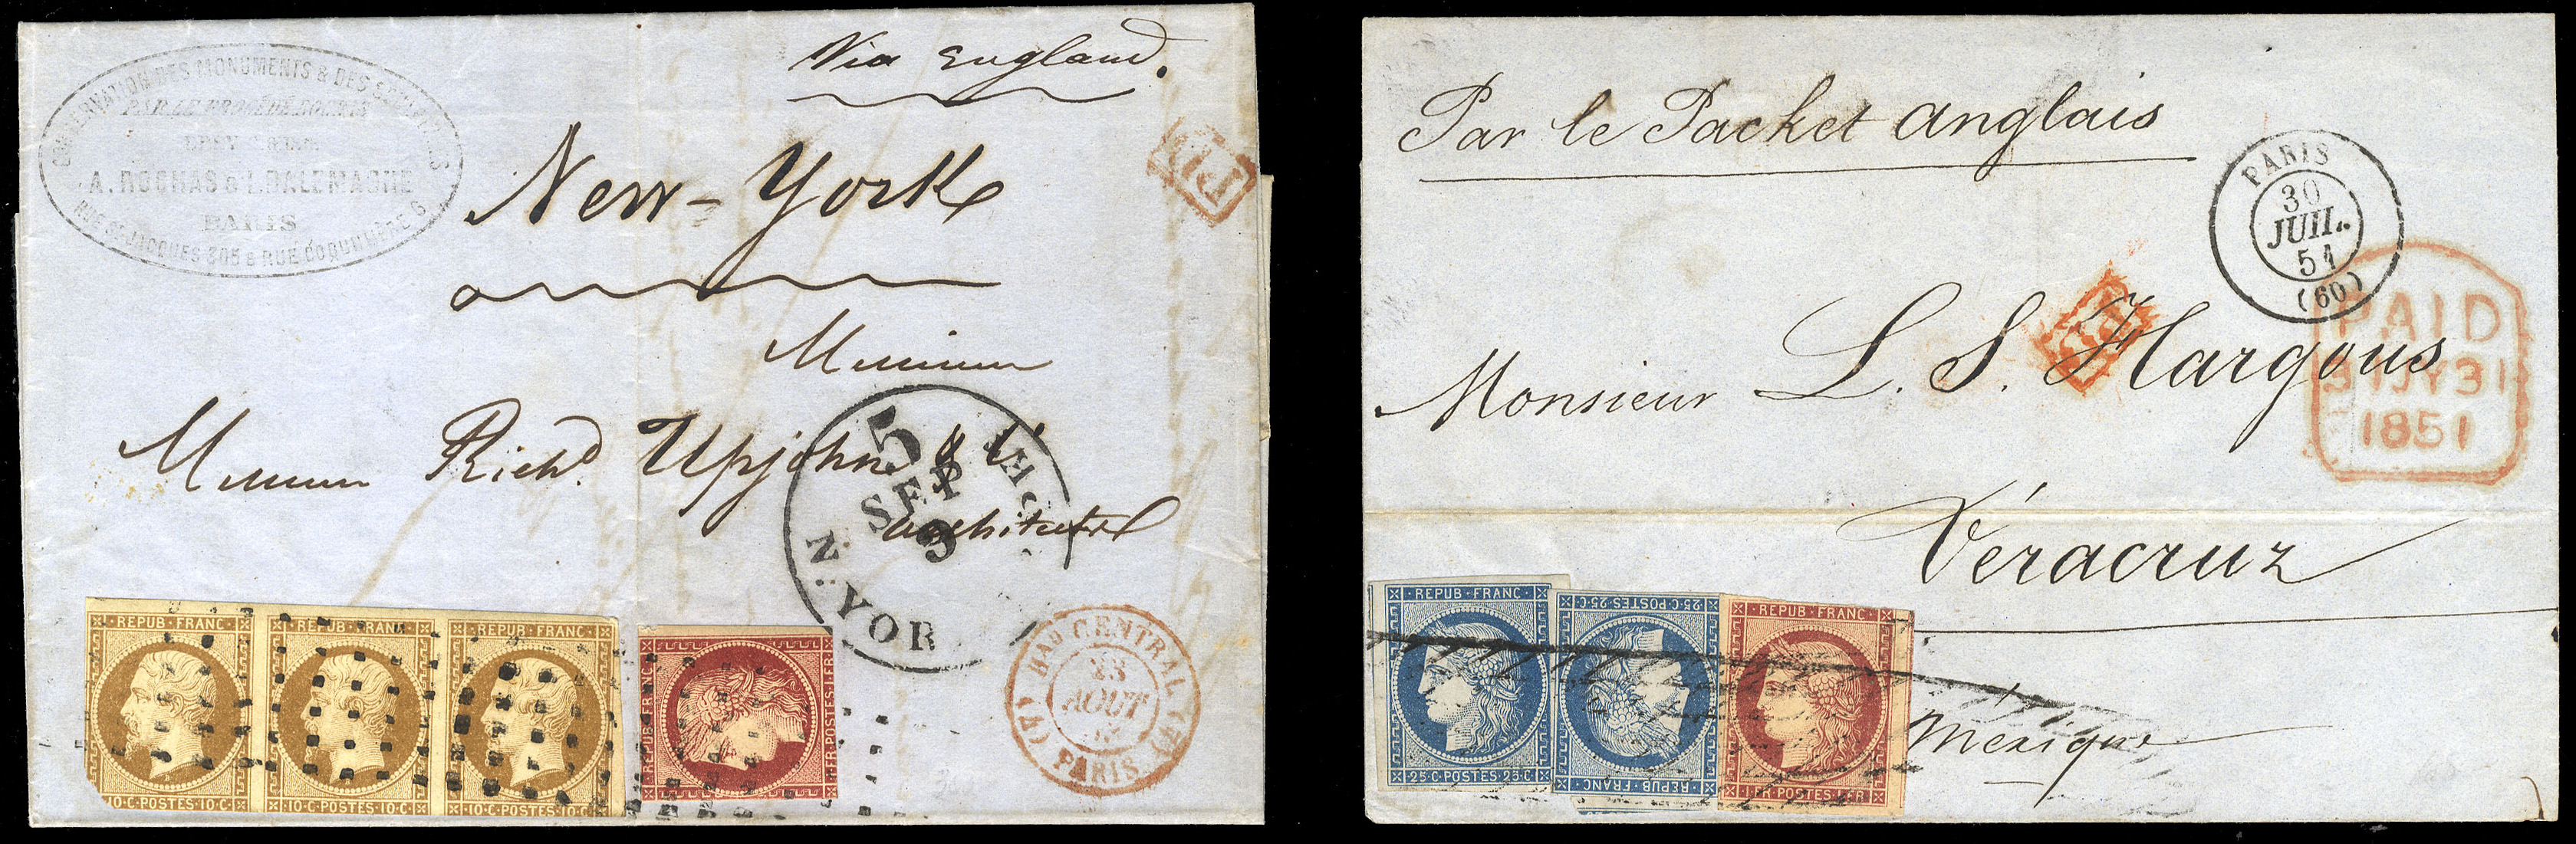 CONSERVATION DES MONUMENTS & DES SCULPTURES
PAR LE PROCÉDÉ ROCHAS
A. ROCHAS & I. DALEMAGNE
PARIS
RUE ST JACQUES & RUE COQUILLIÈRE 6
Via England.
New-York
PD
Richd. Upjohn &
architects
5
SEP
9
N. YOR
REPUB·FRANC·
10·C·POSTES·10·C·
REPUB·FRANC·
10·C·POSTES·10·C·
REPUB·FRANC·
10·C·POSTES·10·C·
REPUB·FRANC·
1·FR·POSTES·1·FR·
Bau CENTRAL
23
AOUT
PARIS
Par le Packet anglais
PARIS
30
JUIL.
51
(60)
PD
PAID
31JY31
1851
Monsieur L. S. Hargous
Véracruz
Méxique
REPUB·FRANC·
25·C·POSTES·25·C·
REPUB·FRANC·
25·C·POSTES·25·C·
REPUB·FRANC·
1·FR·POSTES·1·FR·